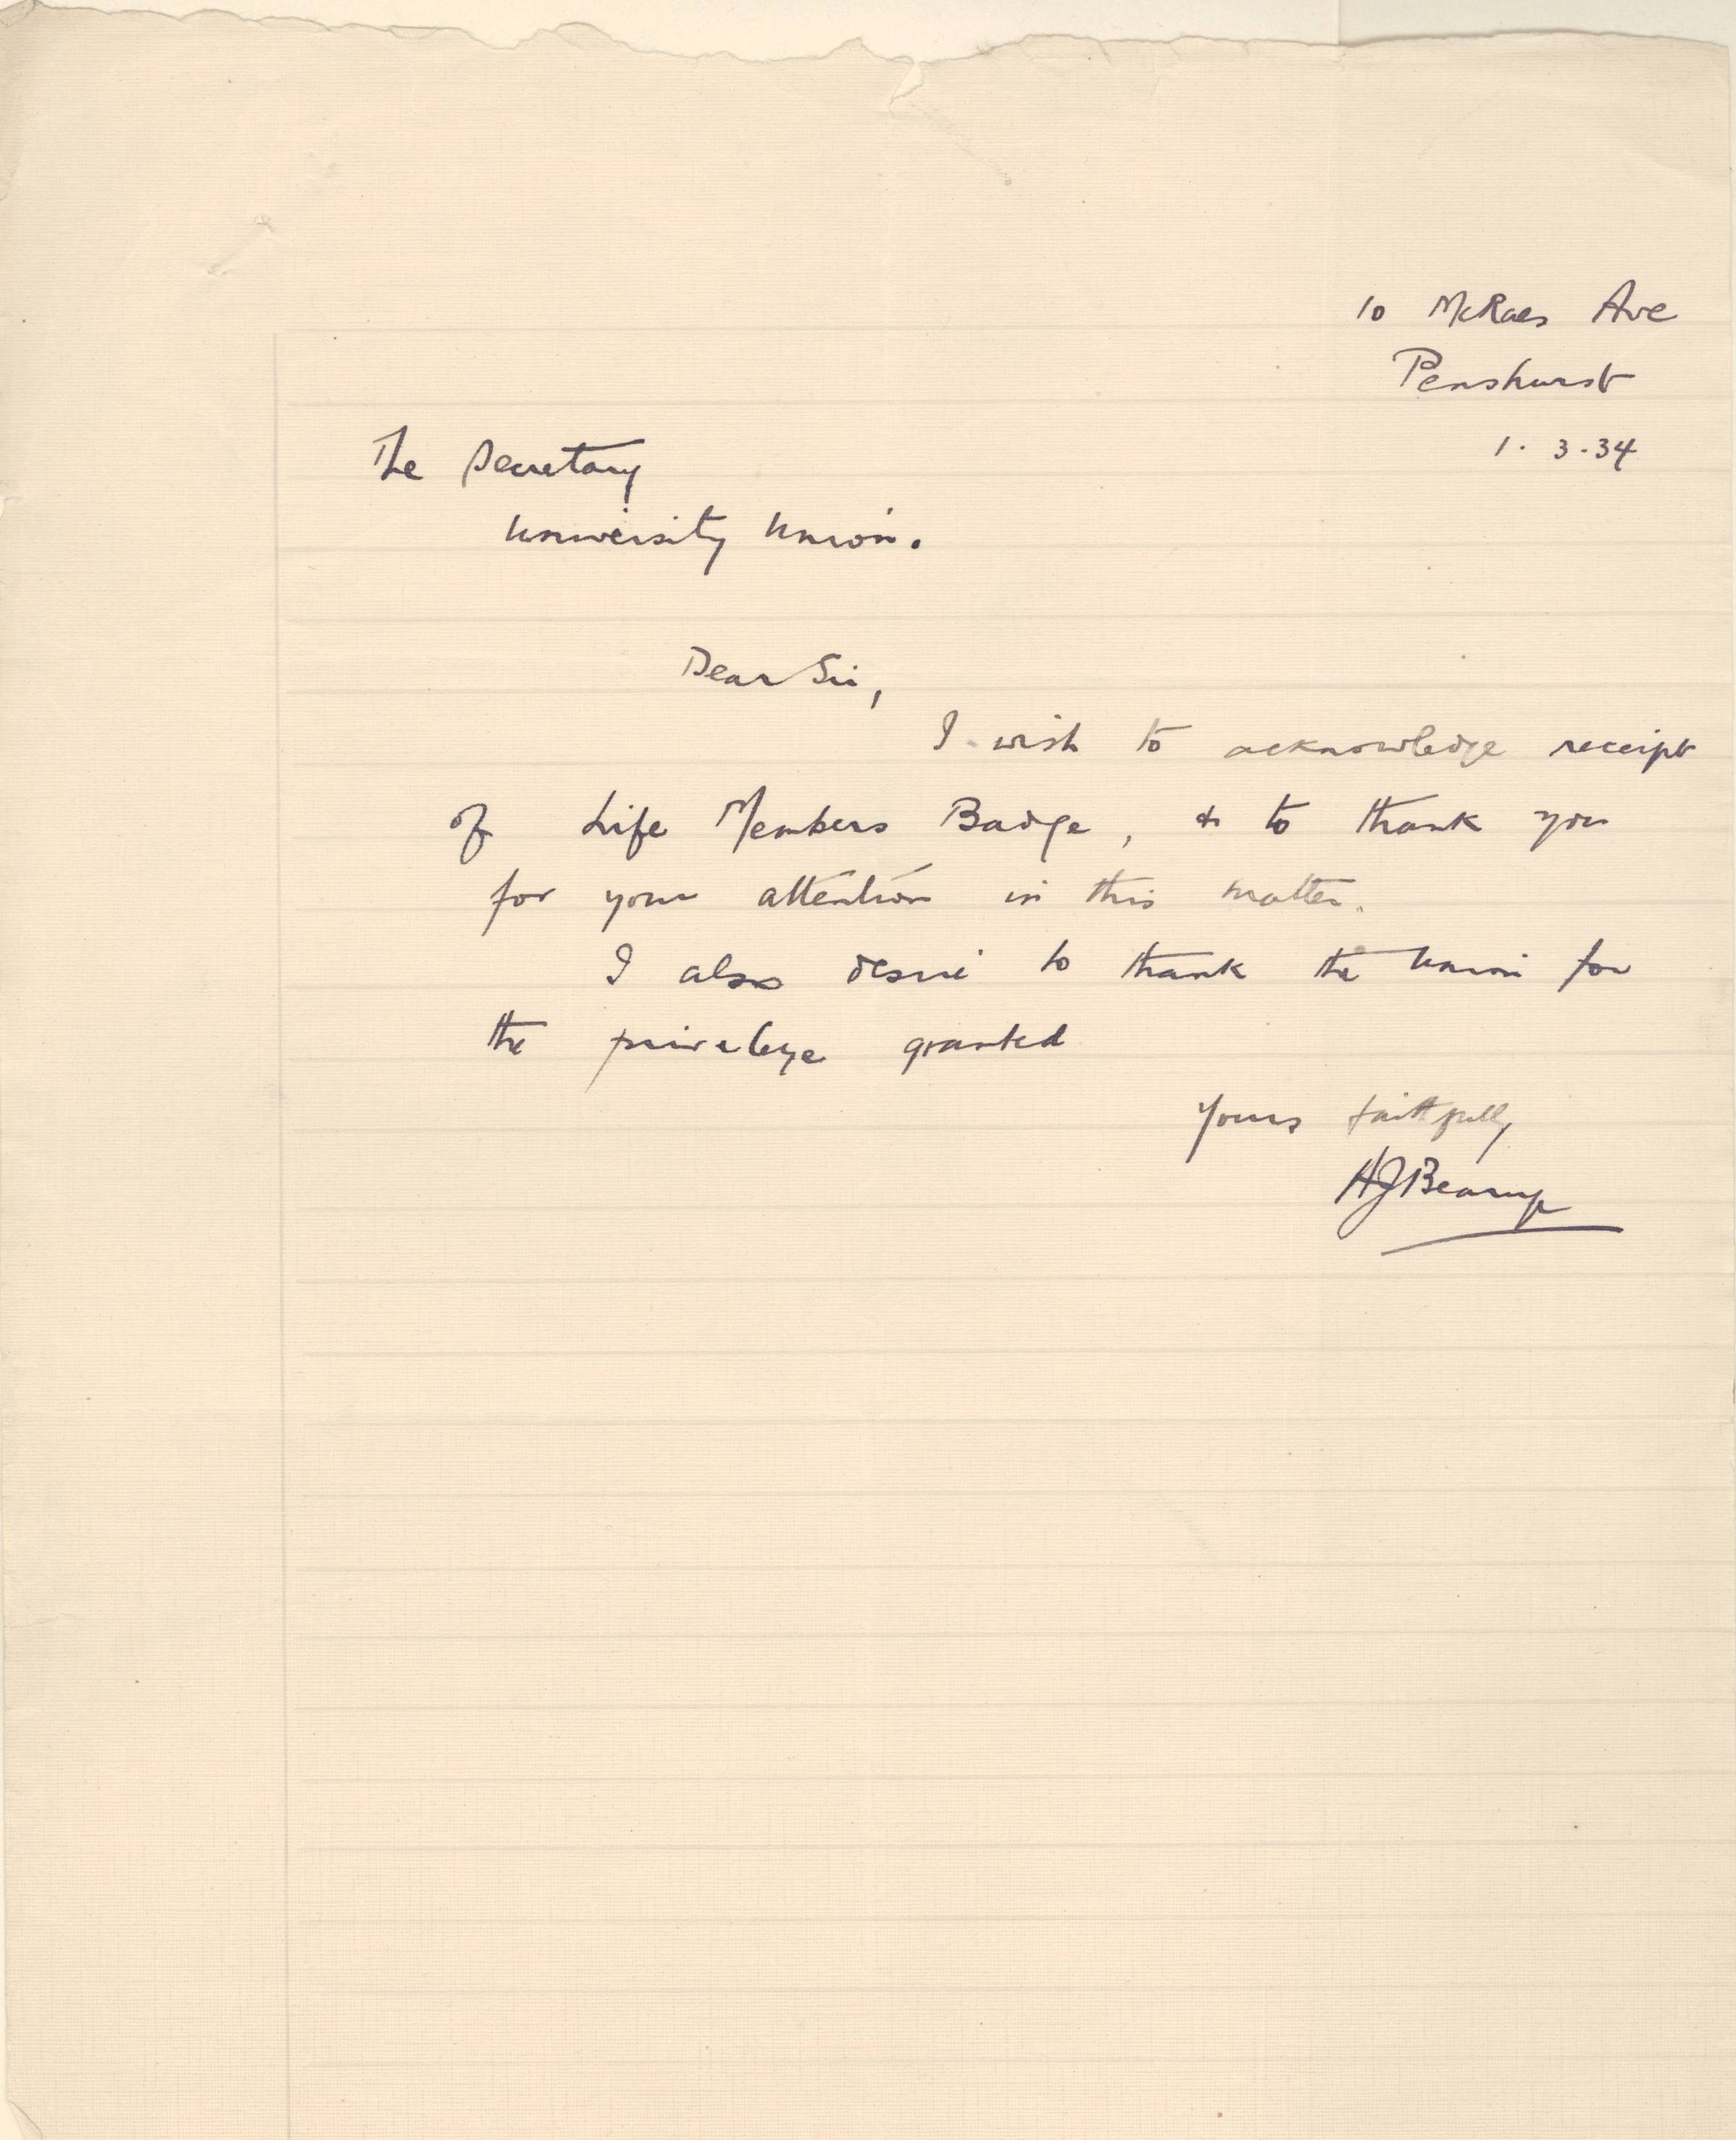 10 McRaes Ave
Penshurst
1. 3. 34
The Secretary
University Union.
Dear Sir,
I wish to acknowledge receipt
of Life Members Badge, & to thank you
for your attention in this matter.
I also desire to thank the Union for
the privelege granted
Yours faithfully
HJBearup